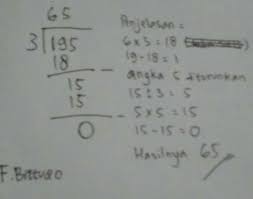 65
3 195
18
15
15
0
Penjelasan =
6 x 3 = 18
19 - 18 = 1
angka 5 diturunkan
15 : 3 = 5
5 x 5 = 15
15 - 15 = 0
Hasilnya 65